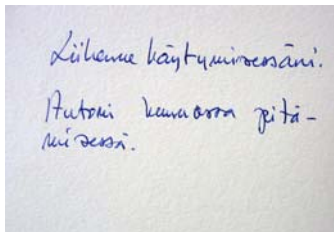 Liikenne käytymisessäni.
Autoni kunnossa pitä-
misessä.